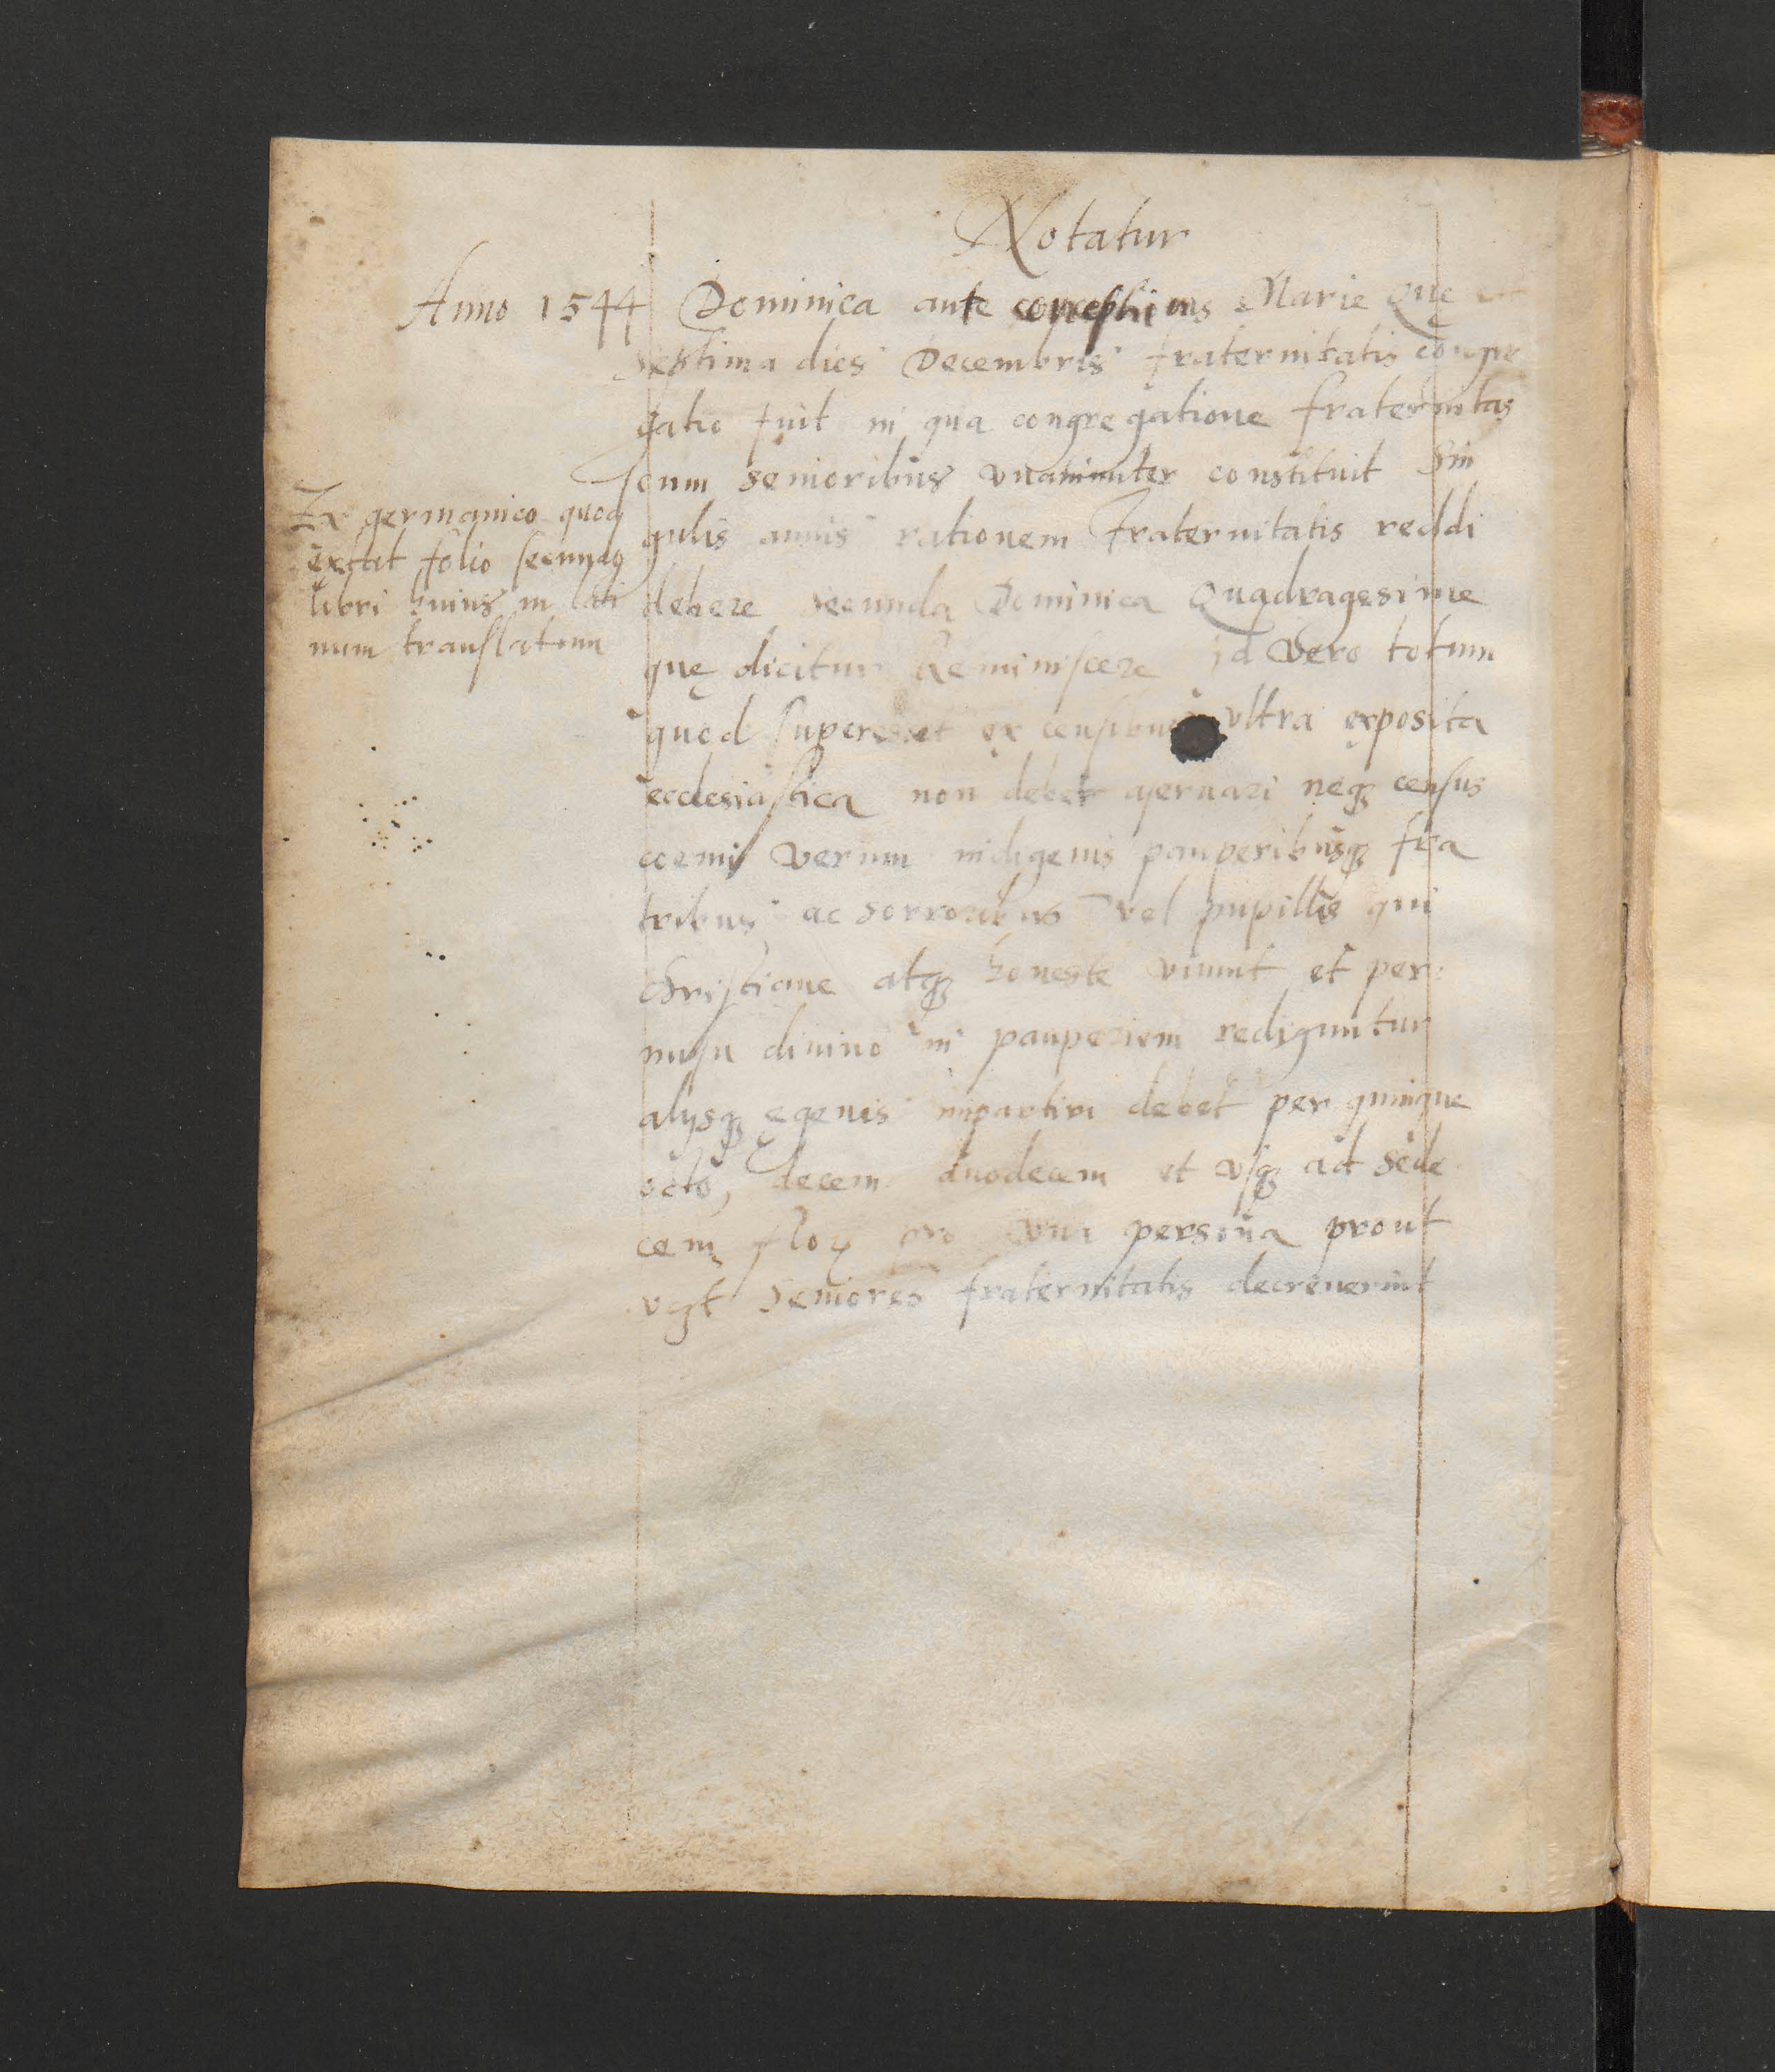 Notatur
Anno 1544 Dominica ante conceptionis Marie Quę
septima dies Decembris fraternitatis congre
gatio fuit in qua congregatione fraternitas
cum senioribus vnanimiter constituit Sin
gulis annis rationem fraternitatis reddi
debere secunda Dominica Quadragesime
quę dicitur Reminiscere id vero totum
quod superesset ex censibus vltra exposita
ecclesiastica non debet aseruari neqꝫ census
coemi verum indigenis pauperibusqꝫ fra
tribus ac sorroribus vel pupillis qui
christiane atqꝫ honeste viuunt et per
missu diuino in pauperiem rediguntur
alysqꝫ egenis impartiri debet per quinque
octo, decem duodecem et vsqꝫ ad sede
cem floꝝ pro vna persona prout
seniores fraternitatis decreuerint
Ex germanico quod
extat folio secundo
libri huius in lati
num translatum